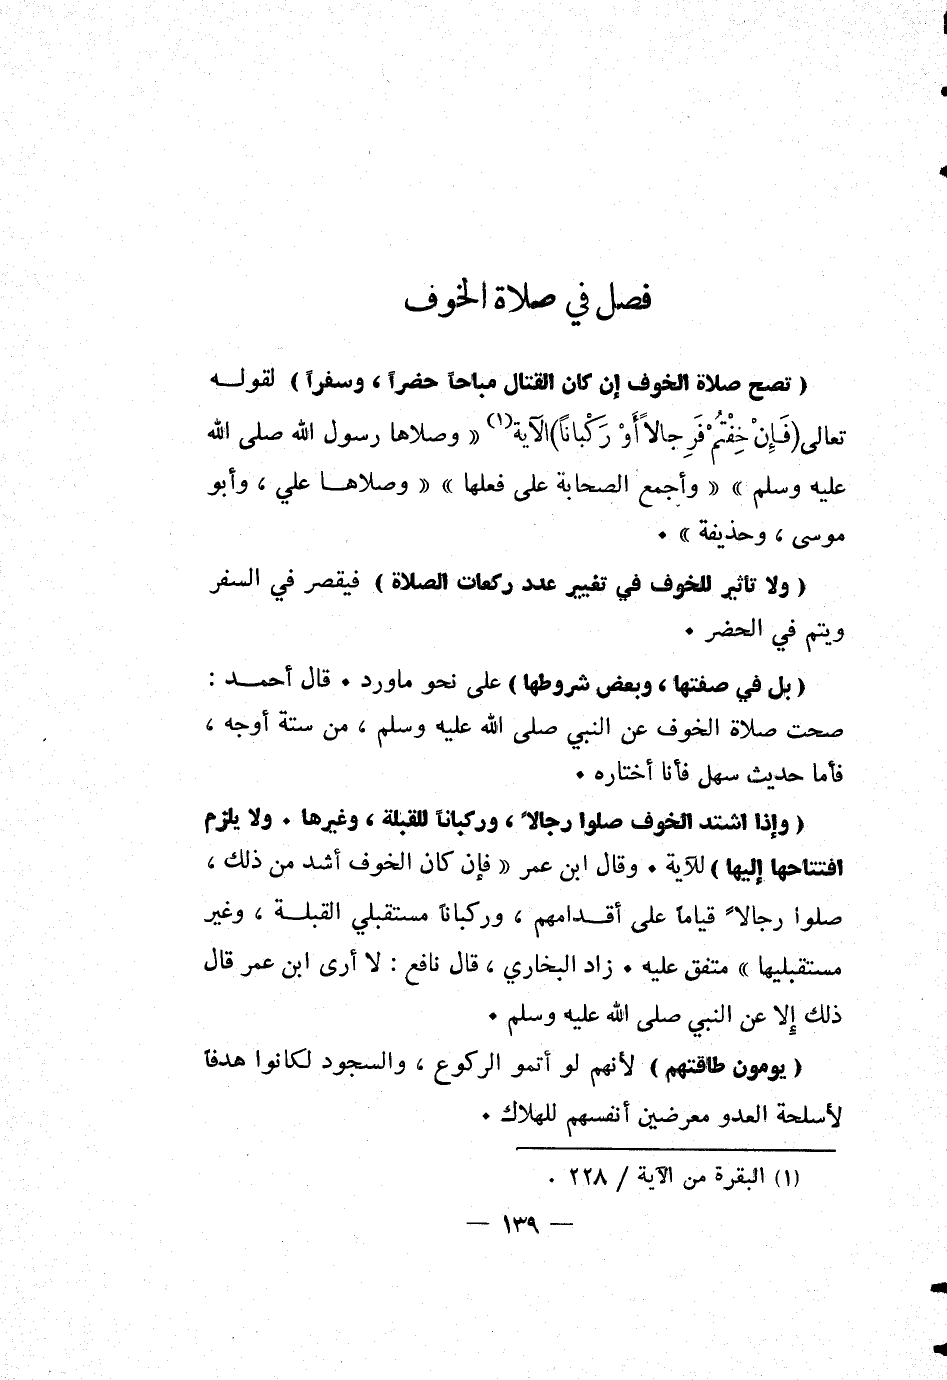 فصل في صلاة الخوف
( تصح صلاة الخوف إن كان القتال مباحاً حضراً ، وسفراً ) لقولـــه
تعالى (فَإِنْ خِفْتُمْ فَرِجالاً أَوْ رَكْباناً) الآية(١) « وصلاها رسول الله صلى الله
عليه وسلم » « وأجمع الصحابة على فعلها » « وصلاهـــا علي ، وأبو
موسى ، وحذيفة » ٠
( ولا تأثير للخوف في تغيير عدد ركعات الصلاة ) فيقصر في السفر
ويتم في الحضر ٠
( بل في صفتها ، وبعض شروطها ) على نحو ماورد ٠ قال أحمـــد :
صحت صلاة الخوف عن النبي صلى الله عليه وسلم ، من ستة أوجه ،
فأما حديث سهل فأنا أختاره ٠
( وإذا اشتد الخوف صلوا رجالاً ، وركباناً للقبلة ، وغيرها ٠ ولا يلزم
افتتاحها إليها ) للآية ٠ وقال ابن عمر « فإن كان الخوف أشد من ذلك ،
صلوا رجالاً قياماً على أقــدامهم ، وركباناً مستقبلي القبلــة ، وغير
مستقبليها » متفق عليه ٠ زاد البخاري ، قال نافع : لا أرى ابن عمر قال
ذلك إلا عن النبي صلى الله عليه وسلم ٠
( يومون طاقتهم ) لأنهم لو أتمو الركوع ، والسجود لكانوا هدفاً
لأسلحة العدو معرضين أنفسهم للهلاك ٠
(١) البقرة من الآية / ٢٢٨ .
— ١٣٩ —